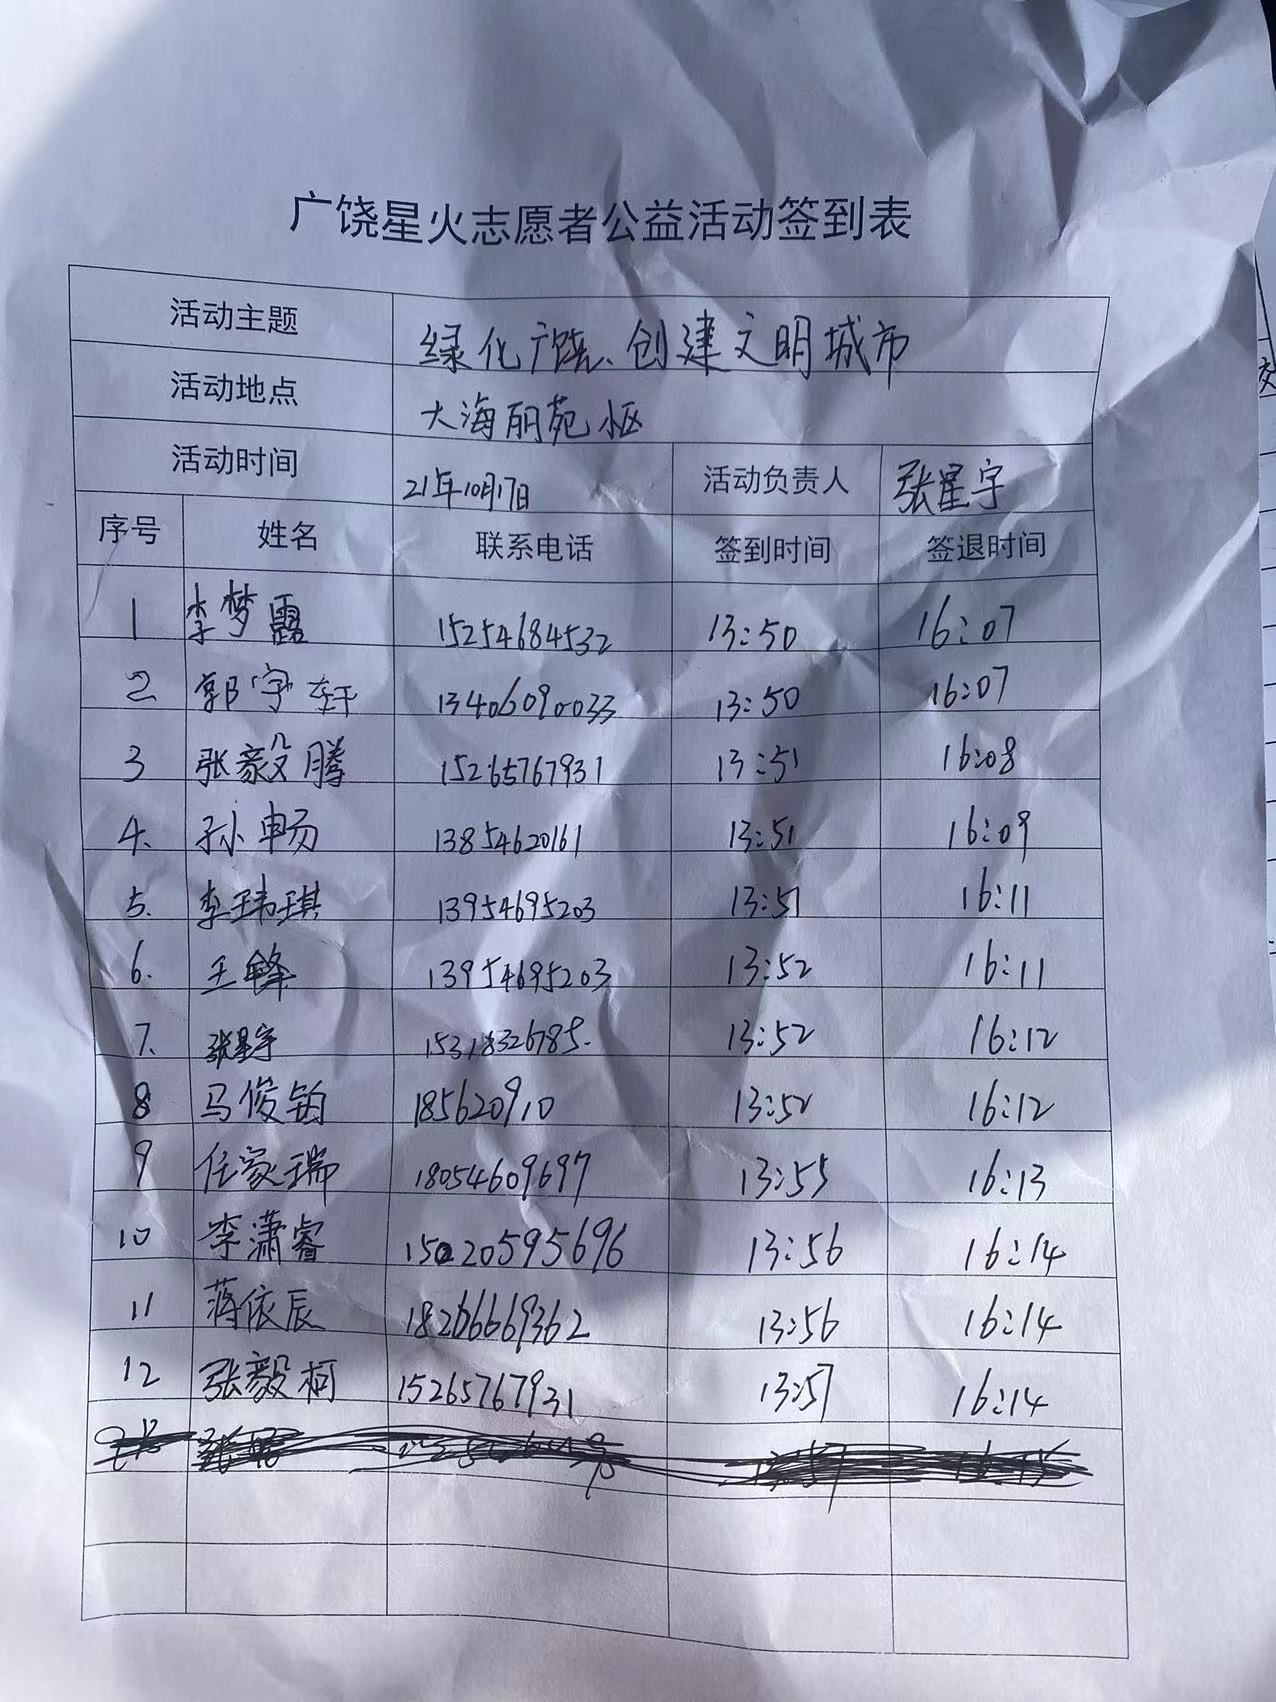 广饶星火志愿者公益活动签到表
活动主题 绿化广饶、创建文明城市
活动地点 大海丽苑小区
活动时间 21年10月17日 活动负责人 张星宇
序号 姓名 联系电话 签到时间 签退时间
1 李梦露 15254684532 13:50 16:07
2 郭宇轩 13406090033 13:50 16:07
3 张毅腾 15265767931 13:51 16:08
4. 孙畅 13854620161 13:51 16:09
5. 李玮琪 13954695203 13:51 16:11
6. 王锋 13954695203 13:52 16:11
7. 张星宇 15318326785. 13:52 16:12
8 马俊铂 185620910 13:52 16:12
9 任家瑞 18054609697 13:55 16:13
10 李潇睿 15020595696 13:56 16:14
11 蒋依辰 18266669362 13:56 16:14
12 张毅柯 15265767931 13:57 16:14